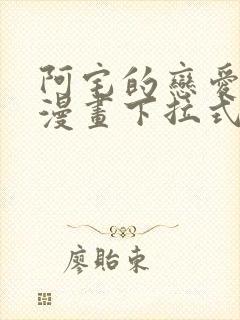 阿宅的戀愛
漫畫下拉式
廖貽東